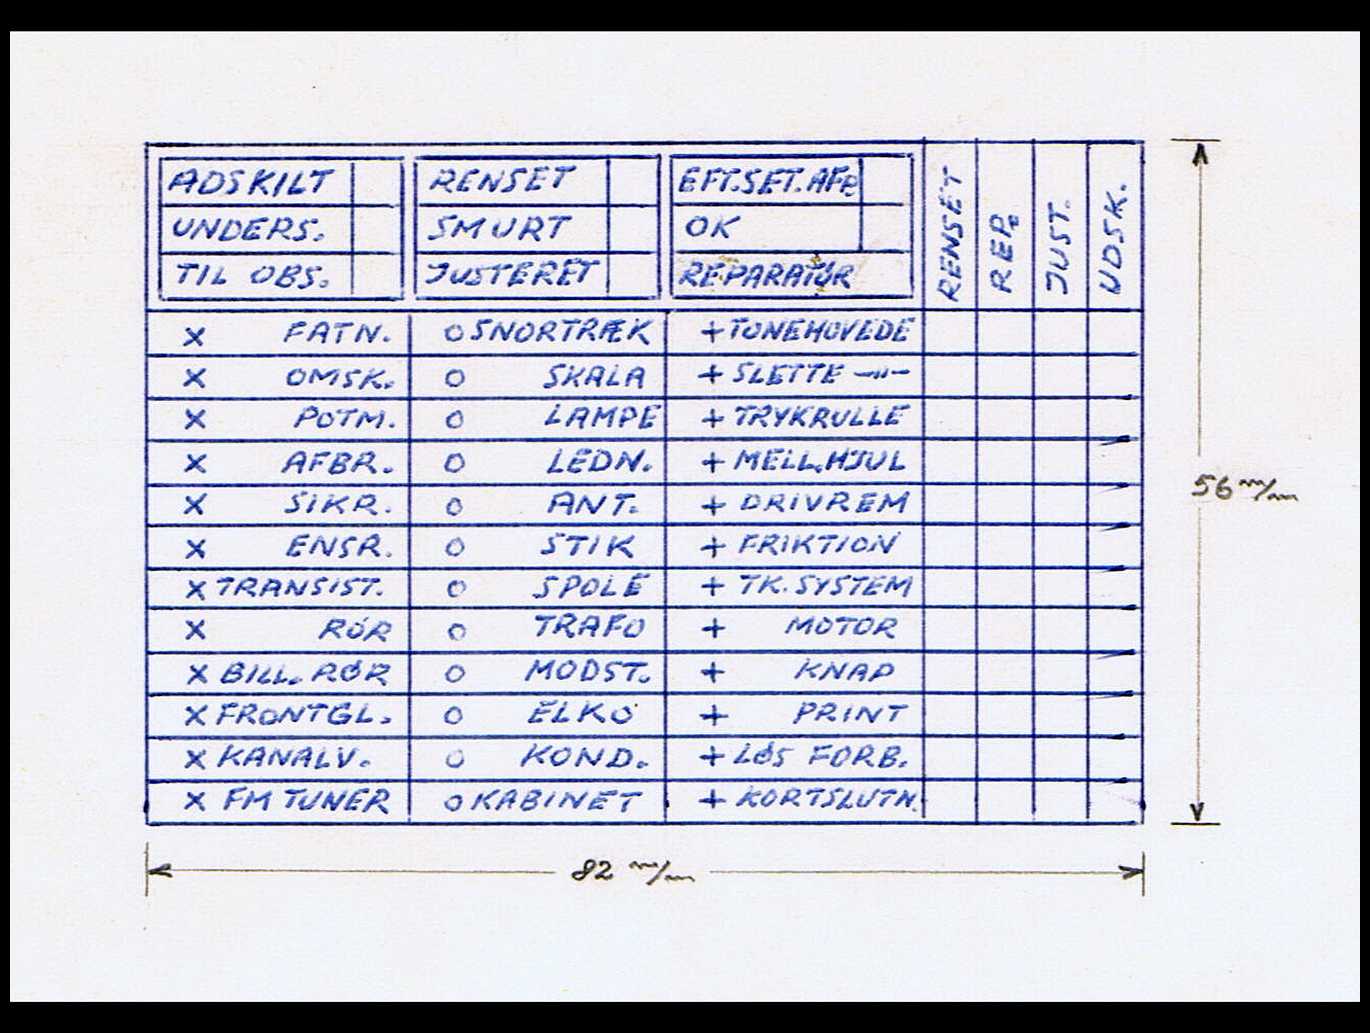 ADSKILT RENSET EFT.SET.AFP. RENSET REP. JUST. UDSK.
UNDERS. SMURT OK
TIL OBS. JUSTERET REPARATØR
x FATN. o SNORTRÆK + TONEHOVEDE
x OMSK. o SKALA + SLETTE —"—
x POTM. o LAMPE + TRYKRULLE
x AFBR. o LEDN. + MELL.HJUL
x SIKR. o ANT. + DRIVREM
x ENSR. o STIK + FRIKTION
x TRANSIST. o SPOLE + TK.SYSTEM
x RØR o TRAFO + MOTOR
x BILL.RØR o MODST. + KNAP
x FRONTGL. o ELKO + PRINT
x KANALV. o KOND. + LØS FORB.
x FM TUNER o KABINET + KORTSLUTN.
56 m/m
82 m/m